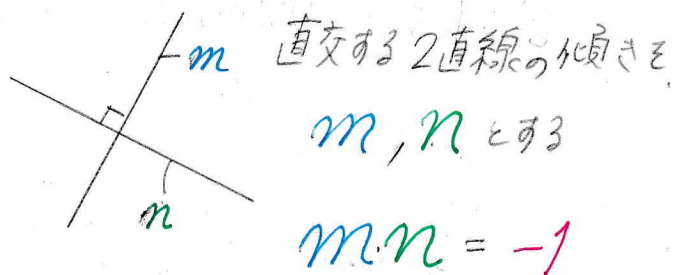 m
n
直交する2直線の傾きを
m, nとする
m・n = -1